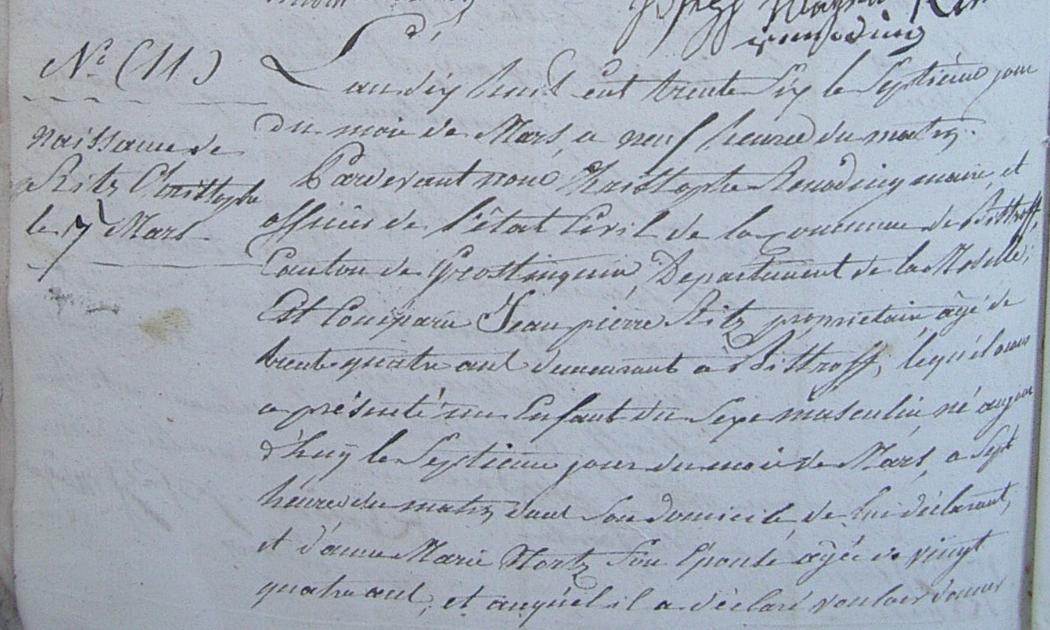 N.º (11)
naissance de
Ritz Christophe
le 7 Mars
L'an dix huit cent trente six le septième jour
du mois de Mars, a neuf heures du matin.
Pardevant nous Christophe Renoding maire, et
officier de l'état Civil de la commune de Bistroff,
Canton de Grostinquin, Département de la Moselle,
Est Comparu Jean pierre Ritz propriétaire âgé de
trente quatre ans demeurant à Bistroff, lequel nous
a présenté un Enfant du Sexe masculin né aujour
d'huÿ le Septième jour du mois de Mars, a Sept
heures du matin, dans Son domicile, de lui déclarant,
et d'anne Marie Hortz Son Epouse âgée de vingt
quatre ans, et auquel il a déclaré vouloir donner